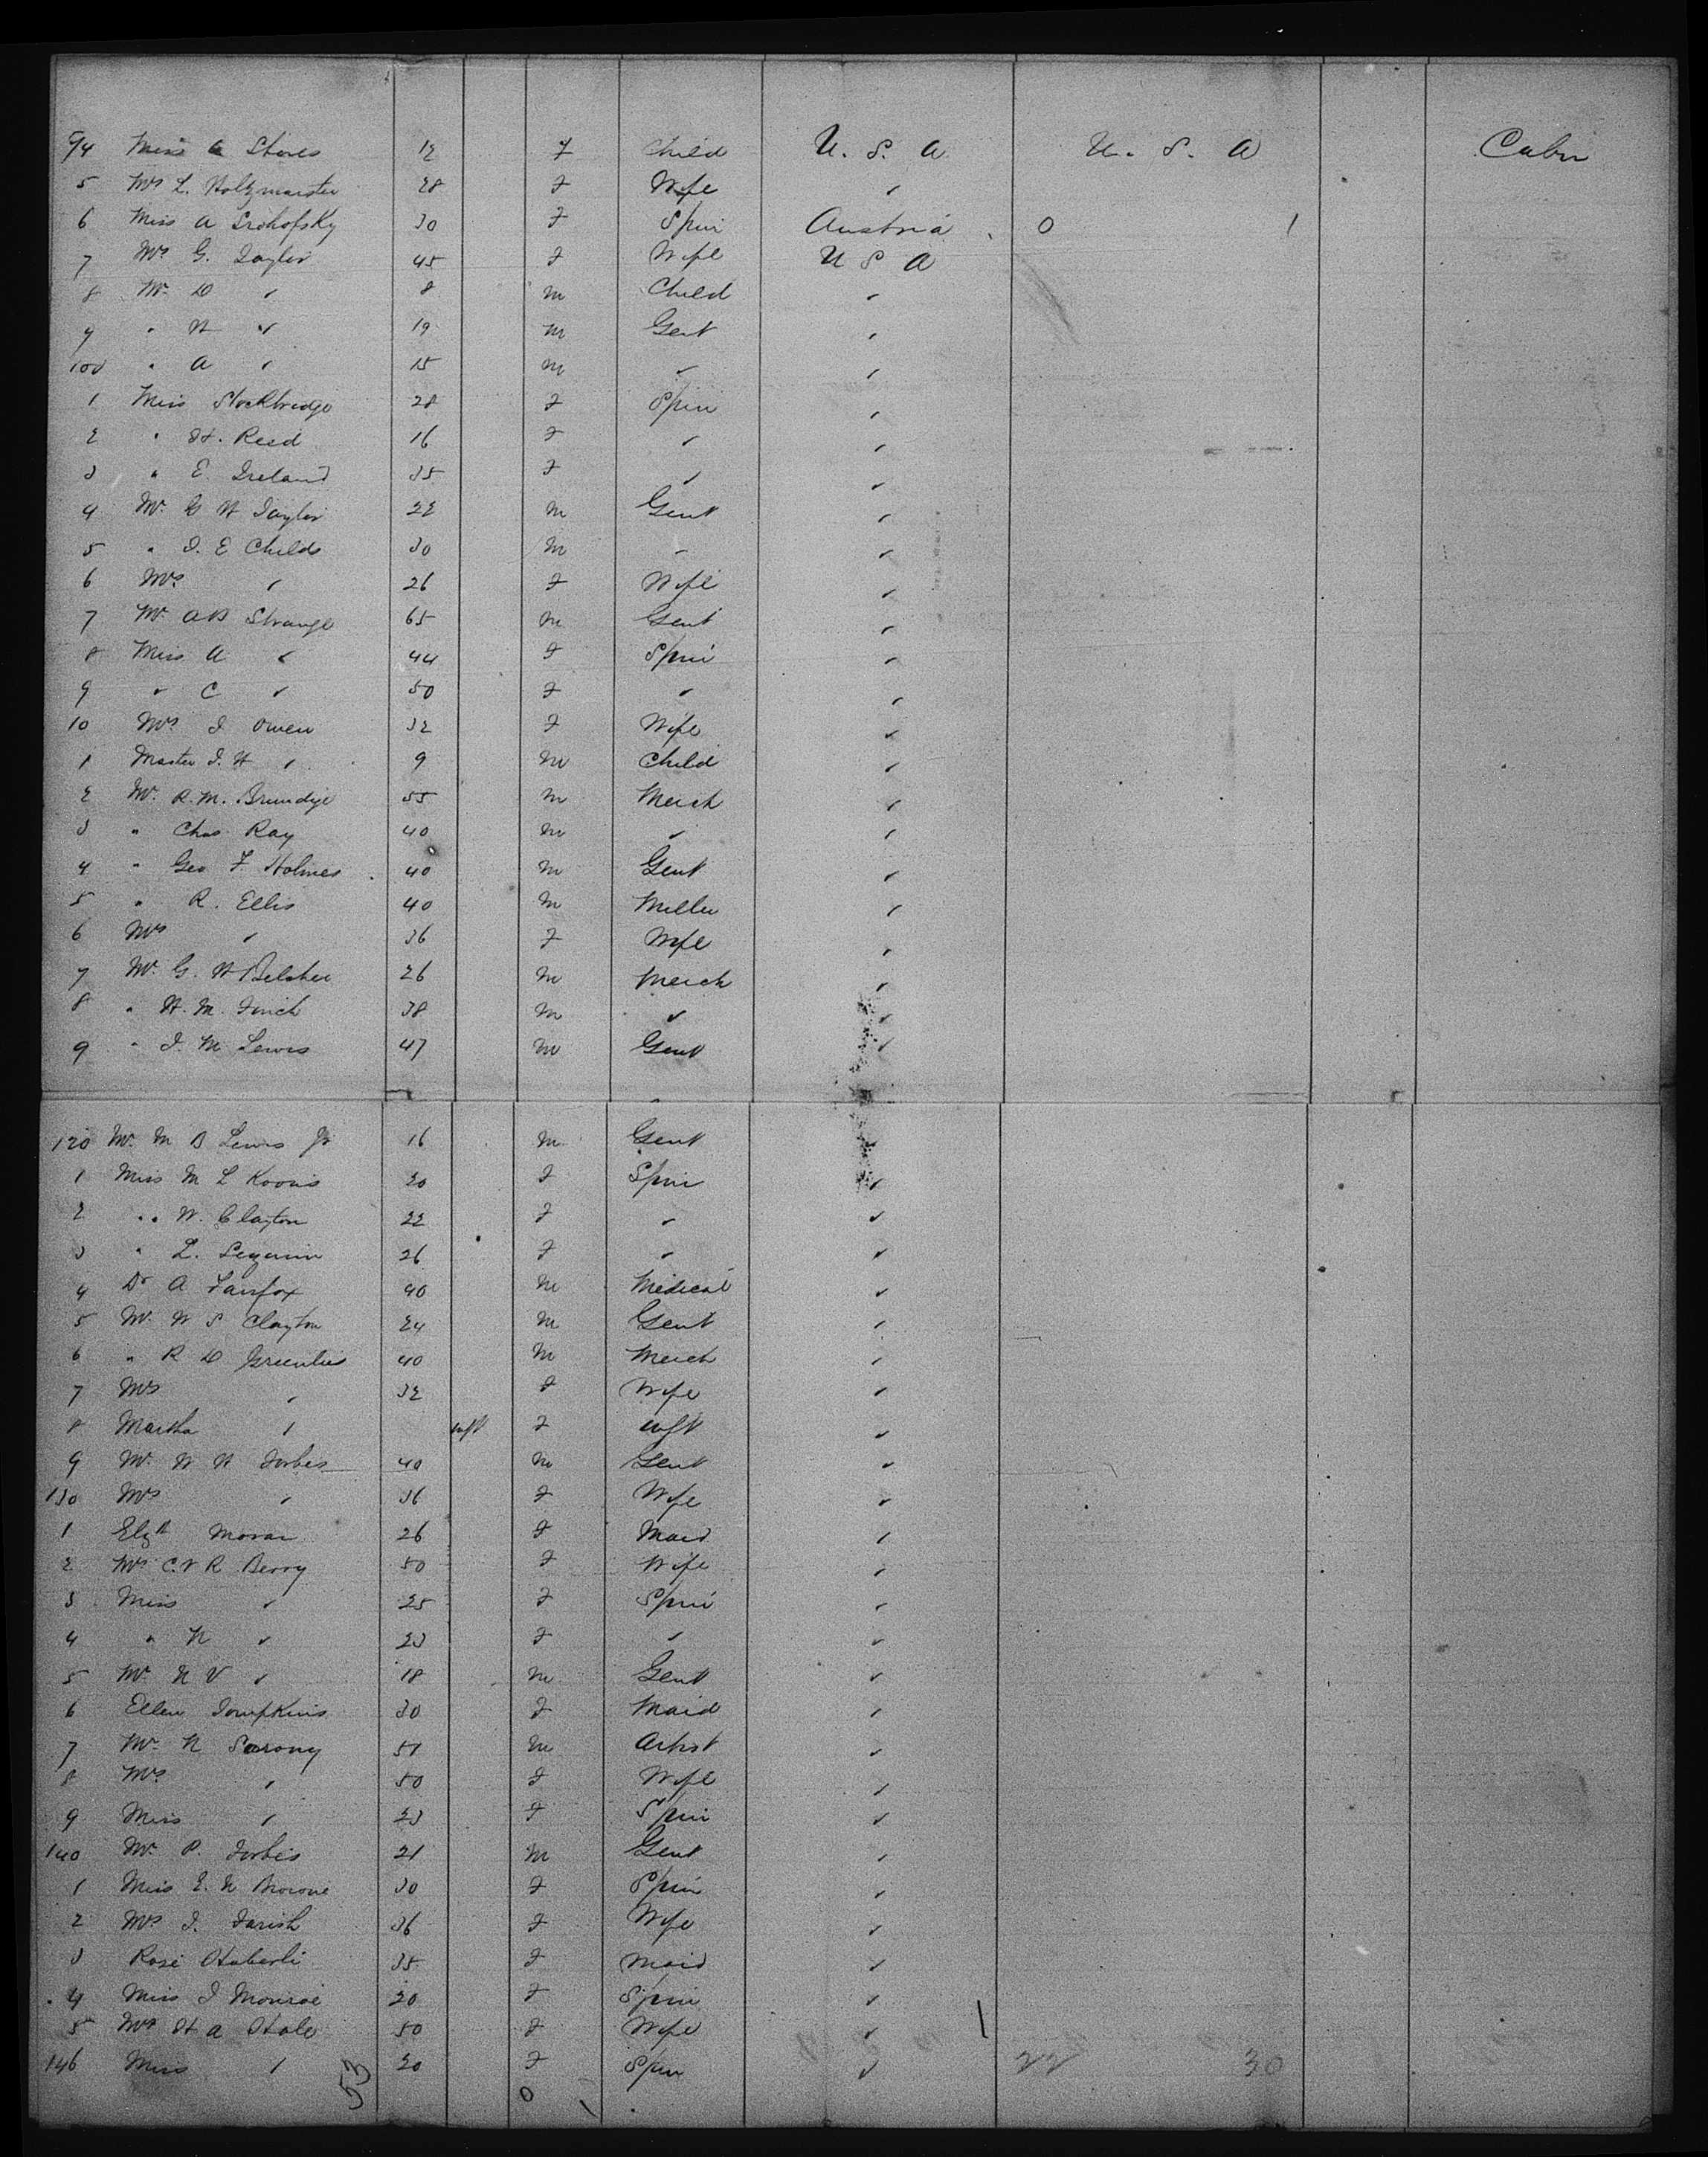 94 Miss A Stores 12 F Child U. S. A U. S. A Cabin
5 Mrs L. Holzmaister 28 F Wife "
6 Miss A 30 F Spin Austria 0 1
7 Mrs G. Taylor 45 F Wife U S A
8 Mr. D " 8 m Child "
9 " H " 19 m Gent "
100 " A " 15 m " "
1 Miss Stockbridge 28 F Spin "
2 " H. Reed 16 F " "
3 " E. Ireland 35 F " "
4 Mr. G H Taylor 22 m Gent "
5 " J. E Childs 30 m " "
6 Mrs " 26 F Wife "
7 Mr. A B Strange 65 m Gent "
8 Miss A " 44 F Spin "
9 " C " 50 F " "
10 Mrs J Owen 32 F Wife "
1 Master J. H " 9 m Child "
2 Mr. R. M. Brundige 55 m Merch "
3 " Chas Ray 40 m " "
4 " Geo F. Holmes 40 m Gent "
5 " R. Ellis 40 m Miller "
6 Mrs " 36 F Wife "
7 Mr. G. H Belcher 26 m Merch "
8 " H. M. Finch 38 m " "
9 " J. M Lewis 47 m Gent "
120 Mr. M B Lewis Jr 16 m Gent "
1 Miss M L Koons 20 F Spin "
2 " W. Clayton 22 F " "
3 " L. 26 F " "
4 Dr A Fairfax 40 m Medical "
5 Mr. W S Clayton 24 m Gent "
6 " R D Greenlees 40 m Merch "
7 Mrs " 32 F Wife "
8 Martha " inft F inft "
9 Mr. W H Forbes 40 m Gent "
130 Mrs " 36 F Wife "
1 Elzth Moran 26 F Maid "
2 Mrs C. V R Berry 50 F Wife "
3 Miss " 25 F Spin "
4 " N " 23 F " "
5 Mr. N V " 18 m Gent "
6 Ellen Tompkins 30 F Maid "
7 Mr. N Sarony 51 m Artist "
8 Mrs " 50 F Wife "
9 Miss " 23 F Spin "
140 Mr. P. Forbes 21 m Gent "
1 Miss E. N 30 F Spin "
2 Mrs J. Farish 36 F Wife "
3 Rose 35 F Maid "
4 Miss J Monroe 20 F Spin "
5 Mrs H A Hale 50 F Wife "
146 Miss " 20 F Spin " 22 30
53 0